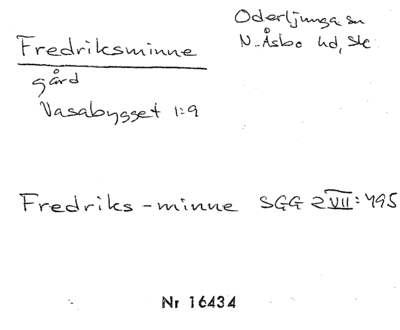 Fredriksminne
Oderljunga sn
N. Åsbo hd, Sk
gård
Vasabygget 1:9
Fredriks-minne SGG 2 VII: 495
Nr 16434